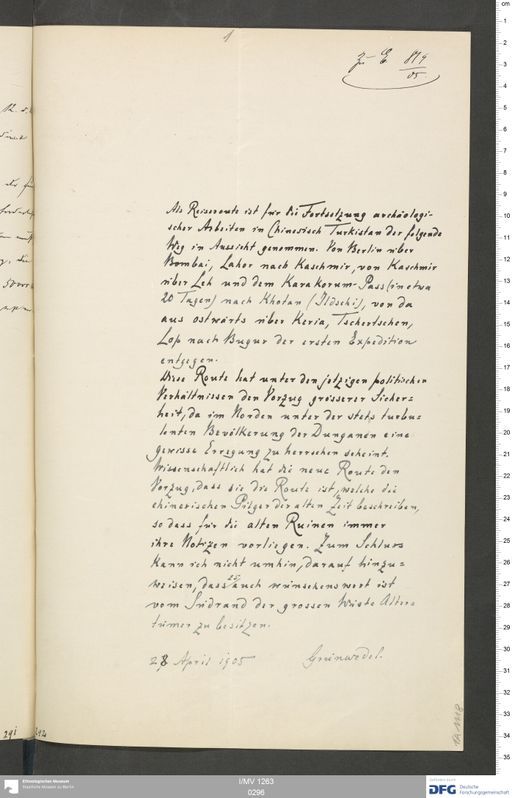 1
zu E 819/05
Als Reiseroute ist für die Fortsetzung archäologi-
scher Arbeiten in Chinesisch Turkistan der folgende
Weg in Aussicht genommen. Von Berlin über
Bombai, Lahor nach Kaschmir, von Kaschmir
über Leh und dem Karakorum-Pass (in etwa
20 Tagen) nach Khotan (Ildschi), von da
aus ostwärts über Keria, Tschertschen,
Lop nach Bugur der ersten Expedition
entgegen.
Diese Route hat unter den jetzigen politischen
Verhältnissen den Vorzug grösserer Sicher=
heit, da im Norden unter der stets turbu=
lenten Bevölkerung der Dunganen eine
gewisse Erregung zu herrschen scheint.
Wissenschaftlich hat die neue Route den
Vorzug, dass sie die Route ist, welche die
chinesischen Pilger der alten Zeit beschreiben,
so dass für die alten Ruinen immer
ihre Notizen vorliegen. Zum Schluss
kann ich nicht umhin, darauf hinzu=
weisen, dass es auch wünschenswert ist
vom Südrand der grossen Wüste Alter=
tümer zu besitzen.
28 April 1905 Grünwedel.
291
292
I/MV 1263
0296
Ethnologisches Museum
Staatliche Museen zu Berlin
DFG Deutsche
Forschungsgemeinschaft